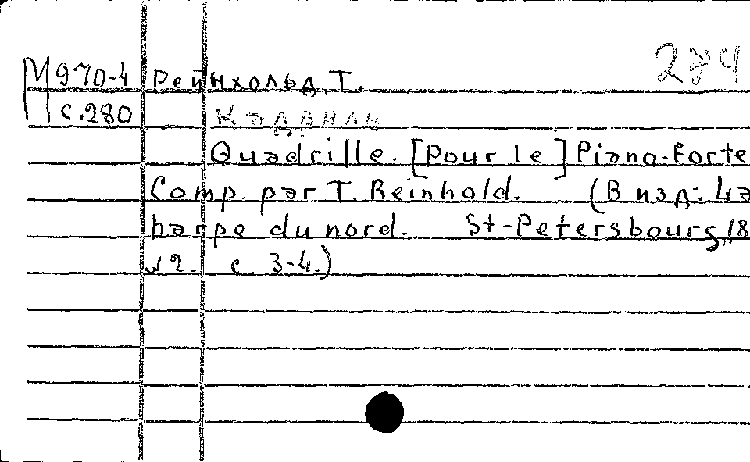 284
М970-4 Рейнхольд, Т.
с.280 Кадриль
Quadrille. [Pour le] Piano-Forte
Comp. par T. Reinhold. (В изд: La
harpe du nord. St-Petersbourg, 18
№2. с 3-4.)